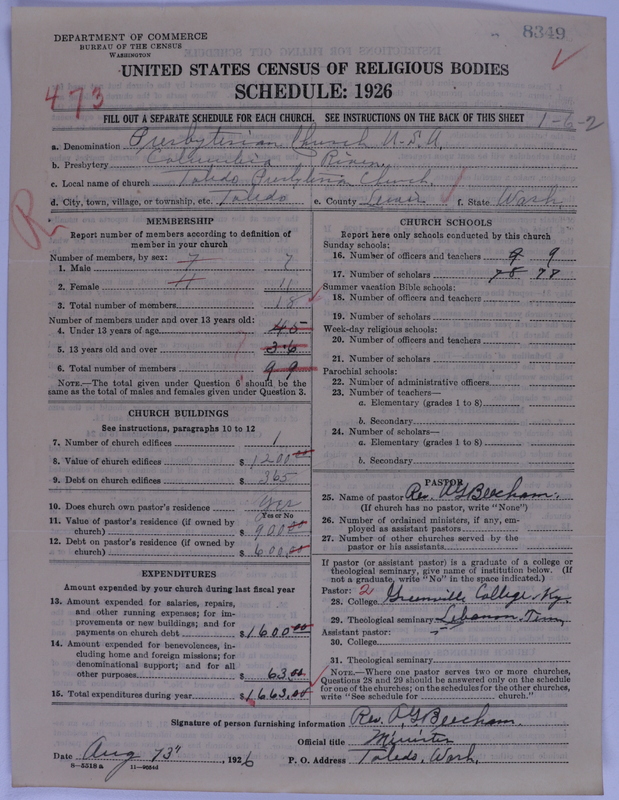 8349
DEPARTMENT OF COMMERCE
BUREAU OF THE CENSUS
WASHINGTON
UNITED STATES CENSUS OF RELIGIOUS BODIES
SCHEDULE: 1926
473
FILL OUT A SEPARATE SCHEDULE FOR EACH CHURCH. SEE INSTRUCTIONS ON THE BACK OF THIS SHEET
1-6-2
a. Denomination Presbyterian Church U.S.A.
b. Presbytery Columbia River
c. Local name of church Toledo Presbyterian Church
d. City, town, village, or township, etc. Toledo e. County Lewis f. State Wash.
R
MEMBERSHIP
Report number of members according to definition of
member in your church
Number of members, by sex: 7
1. Male 7
2. Female 11 11
3. Total number of members 18
Number of members under and over 13 years old:
4. Under 13 years of age 45
5. 13 years old and over 36
6. Total number of members 99
NOTE.—The total given under Question 6 should be the
same as the total of males and females given under Question 3.
CHURCH BUILDINGS
See instructions, paragraphs 10 to 12
7. Number of church edifices 1
8. Value of church edifices $ 1200.00
9. Debt on church edifices $ 365
10. Does church own pastor's residence Yes
Yes or No
11. Value of pastor's residence (if owned by
church) $ 900.00
12. Debt on pastor's residence (if owned by
church) $ 600.00
EXPENDITURES
Amount expended by your church during last fiscal year
13. Amount expended for salaries, repairs,
and other running expenses; for im-
provements or new buildings; and for
payments on church debt $ 1600.00
14. Amount expended for benevolences, in-
cluding home and foreign missions; for
denominational support; and for all
other purposes $ 63.00
15. Total expenditures during year $ 1663.00
CHURCH SCHOOLS
Report here only schools conducted by this church
Sunday schools:
16. Number of officers and teachers 9 9
17. Number of scholars 78 78
Summer vacation Bible schools:
18. Number of officers and teachers
19. Number of scholars
Week-day religious schools:
20. Number of officers and teachers
21. Number of scholars
Parochial schools:
22. Number of administrative officers
23. Number of teachers—
a. Elementary (grades 1 to 8)
b. Secondary
24. Number of scholars—
a. Elementary (grades 1 to 8)
b. Secondary
PASTOR
25. Name of pastor Rev. O G Beecham.
(If church has no pastor, write "None")
26. Number of ordained ministers, if any, em-
ployed as assistant pastors
27. Number of other churches served by the
pastor or his assistants
If pastor (or assistant pastor) is a graduate of a college or
theological seminary, give name of institution below. (If
not a graduate, write "No" in the space indicated.)
Pastor: 2
28. College Greenville College, Ky.
29. Theological seminary Lebanon, Tenn
Assistant pastor:
30. College
31. Theological seminary
NOTE.—Where one pastor serves two or more churches,
Questions 28 and 29 should be answered only on the schedule
for one of the churches; on the schedules for the other churches,
write "See schedule for church."
Signature of person furnishing information Rev. O G Beecham.
Official title Minister
Date Aug 13" , 1926 P. O. Address Toledo, Wash.
8—5518 a